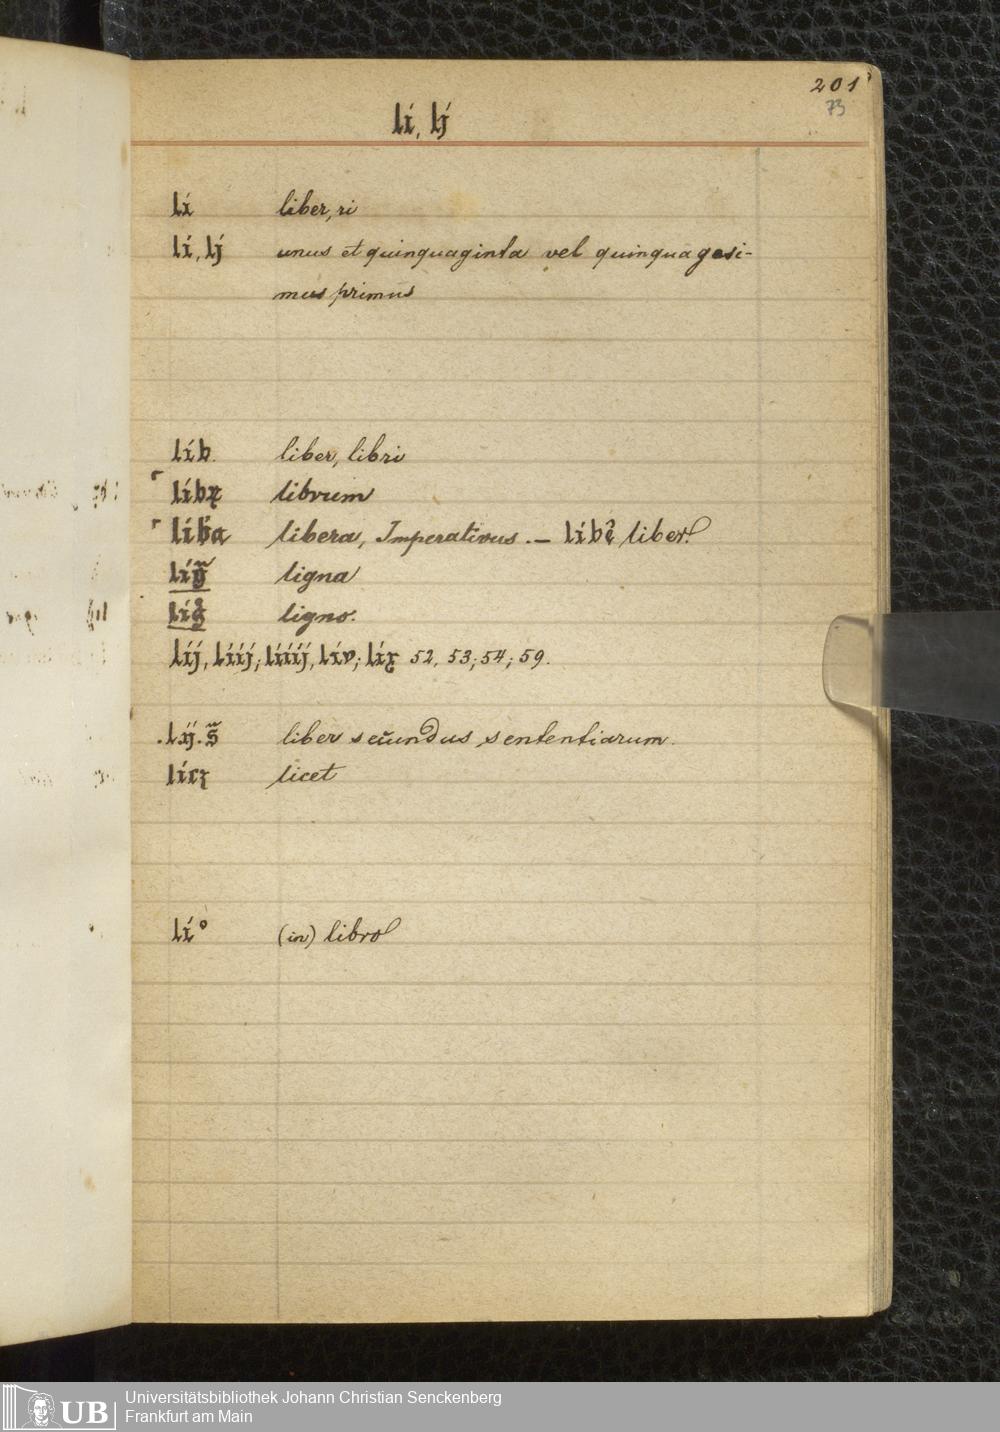 201
73
lí, lj́
lí liber, ri
lí, lj́ unus et quinquaginta vel quinquagesi-
mus primus
líb. liber, libri
líbꝝ librum
líba libera, Imperativus. — líbe liber
líg̃ ligna
lígͦ ligno.
líj, lííj; lííij, lív; líx 52, 53; 54; 59.
.lij.s̃ liber secundus sententiarum.
lícꝫ licet
lí° (in) libro
UB
Universitätsbibliothek Johann Christian Senckenberg
Frankfurt am Main